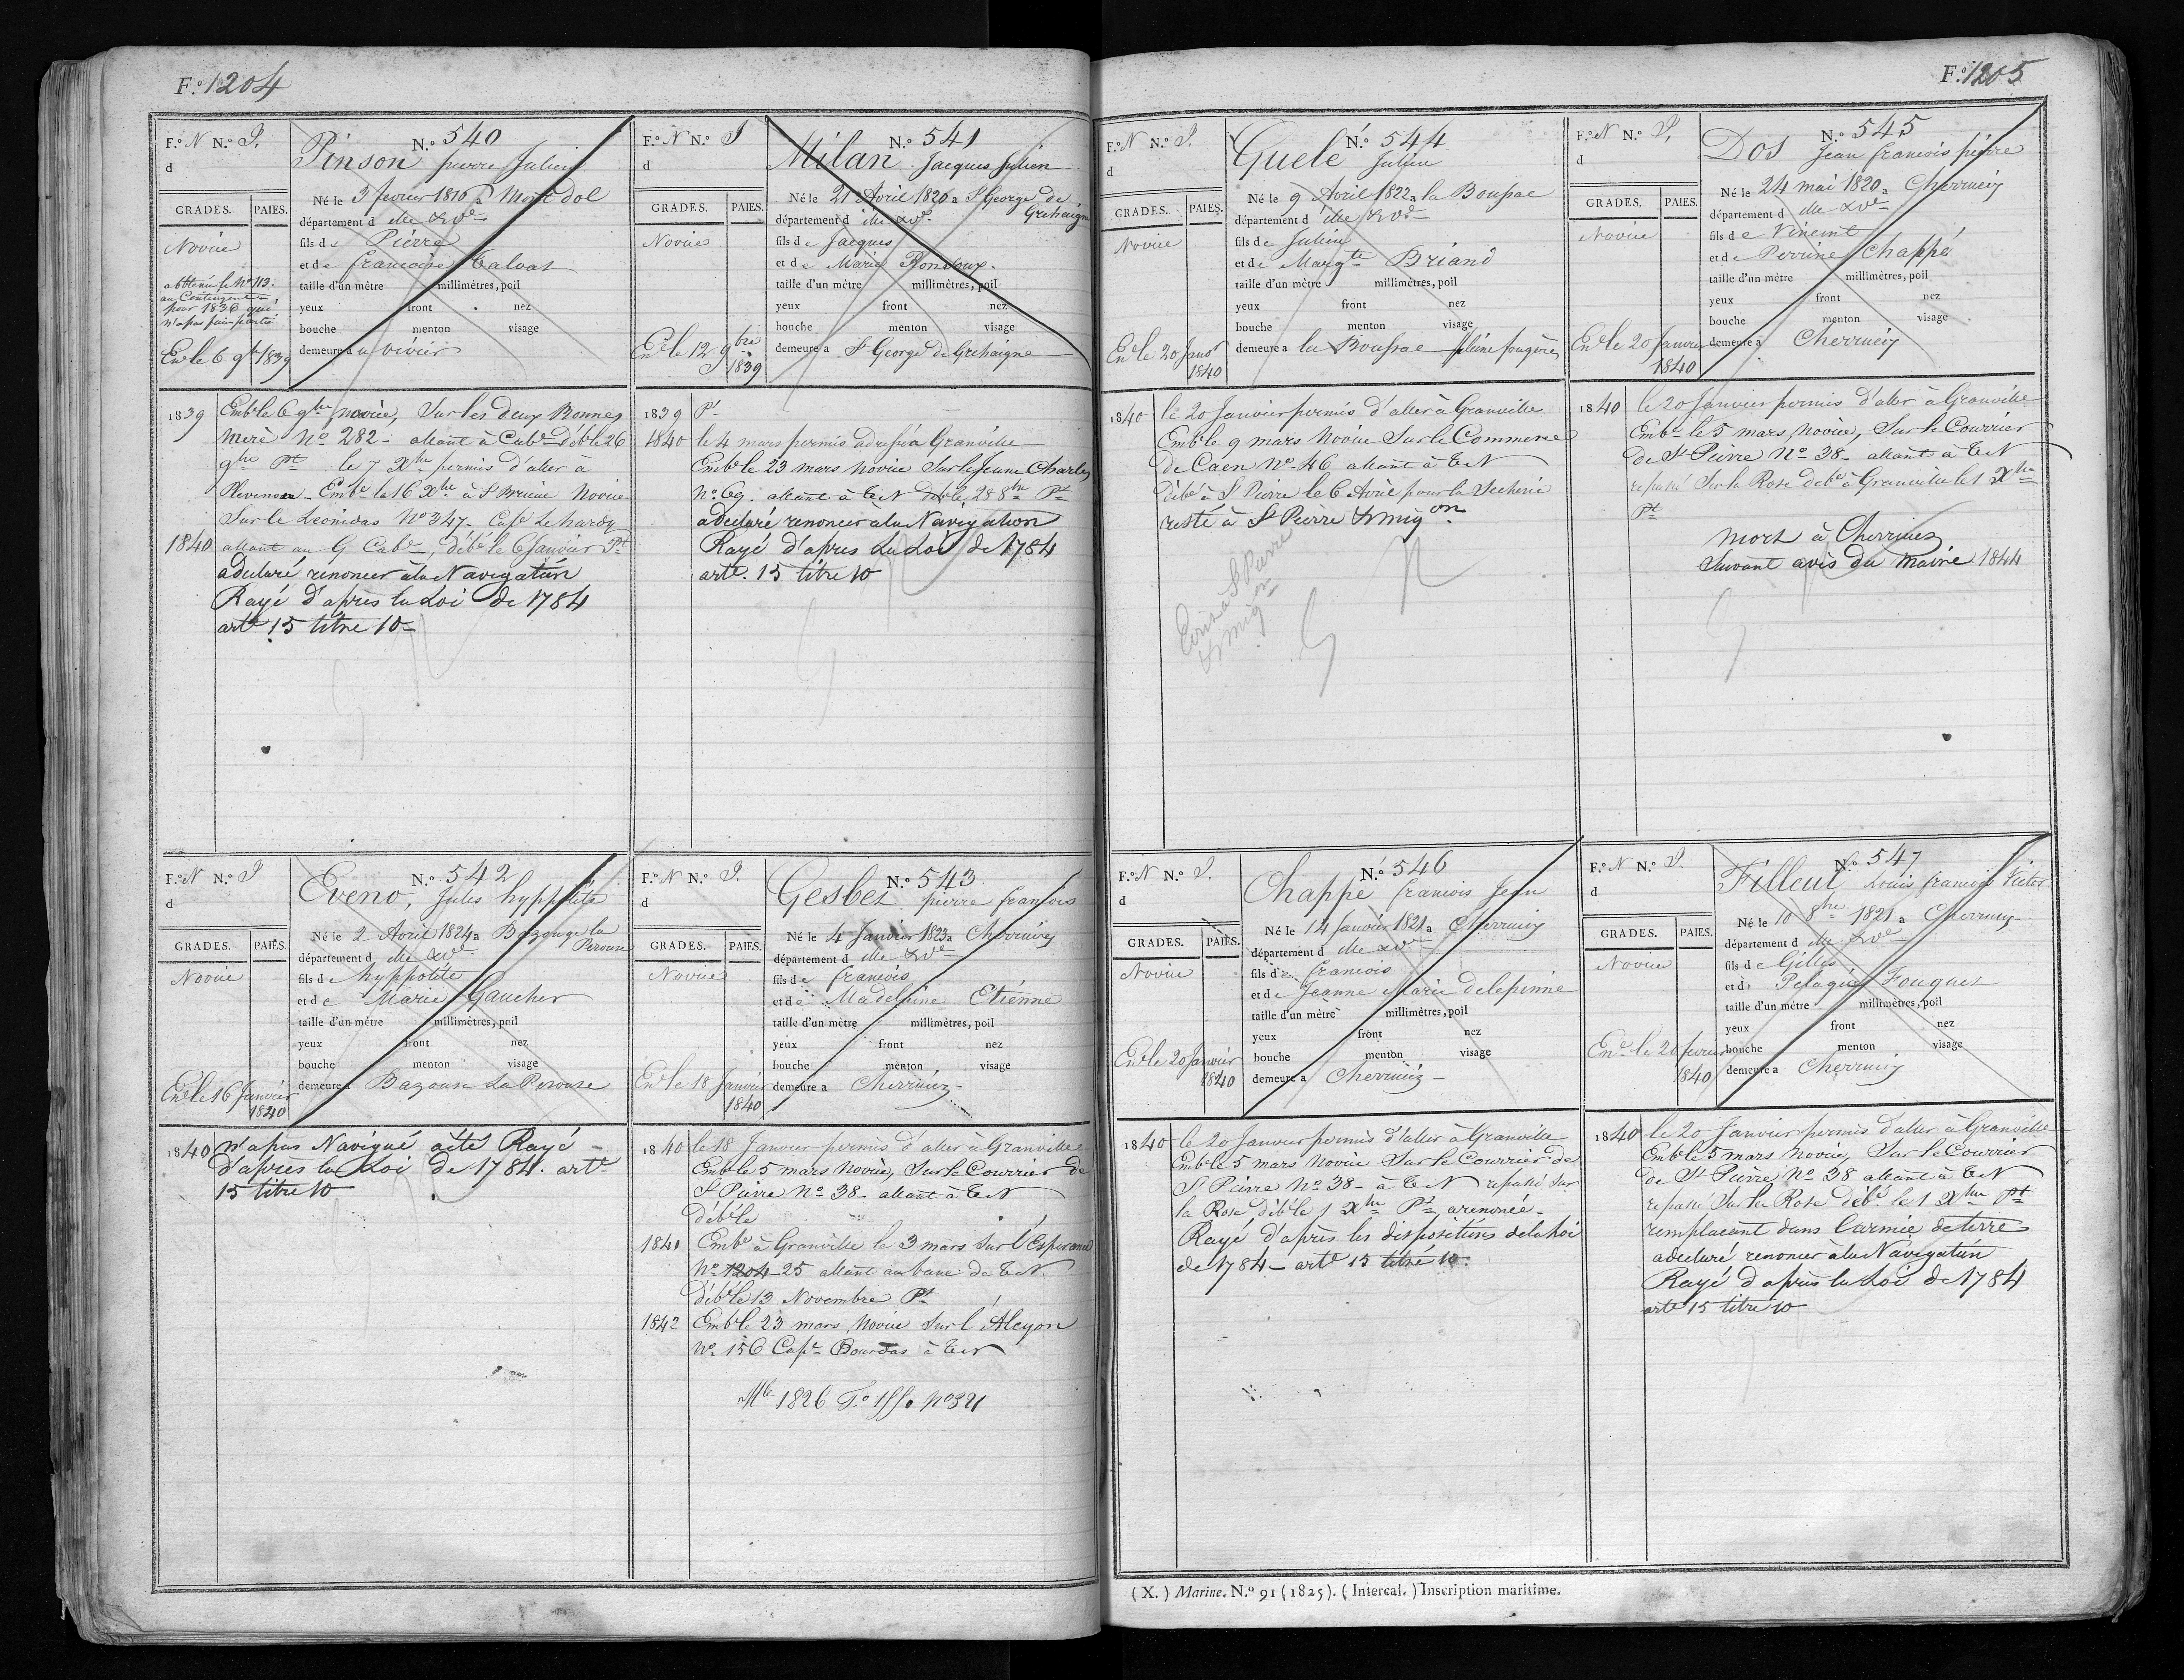 F.º 1204
F.º N N.º P.
d
N.º 540
Pinson pierre Julien
GRADES. PAIES.
Novice
Né le 3 fevrier 1816 a Mont dol
département d ille &Ve
fils de Pierre
et de francoise Talvat
taille d'un mètre millimètres, poil
yeux front nez
bouche menton visage
demeure au vivier
abttenu le Nº 113.
au Contingent
pour 1836 qui
n'a pas fait partie
Enle le 6 9bre 1839
1839 Emble 6 9bre novice, Sur les deux Bonnes
mere Nº 282 - allant à Cabe Déble 26
9bre Pt le 7 Xbre permis d'aller à
Plevenon - Embe le 16 Xbre à St Brieuc Novice
Sur le Leonidas Nº 347 - Cape Lehardy
1840 allant au G Cabe, débé le 6 Janvier Pt
a declaré renoncer à la Navigation
Rayé d'après la Loi de 1784
arte 15 titre 10
F.º N N.º P
d
N.º 541
Milan Jacques Julien
GRADES. PAIES.
Novice
Né le 21 Avril 1820 a St George de
Grehaigne
département d ille &Ve
fils de Jacques
et de Marie Rondoux.
taille d'un mètre millimètres, poil
yeux front nez
bouche menton visage
demeure a St George de Grehaigne
Enle le 12 9bre
1839
1839 Pt
1840 le 4 mars permis à Granville
Emble 23 mars novice Sur le Jeune Charles
nº 69. allant à TN Déble 28 8bre Pt
a declaré renoncer à la Navigation
Rayé d'apres la Loi de 1784
arte. 15 titre 10
F.º N N.º P
d
N.º 542
Eveno, Jules hyppolite
GRADES. PAIES.
Novice
Né le 2 Avril 1824 a Bazouge la
Perouse
département d ille &Ve
fils de hyppolite
et de Marie Gaucher
taille d'un mètre millimètres, poil
yeux front nez
bouche menton visage
demeure a Bazouse La Perouse
Enle le 16 Janvier
1840
1840 N'a pas Navigué a été Rayé
d'apres la Loi de 1784. arte
15 titre 10
F.º N N.º P.
d
N.º 543
Gesbes pierre francois
GRADES. PAIES.
Novice
Né le 4 Janvier 1823 a Cherrueix
département d ille &Ve
fils de francois
et de Madeleine Etienne
taille d'un mètre millimètres, poil
yeux front nez
bouche menton visage
demeure a Cherrueix
Enle le 18 Janvier
1840
1840 le 18 Janvier permis d'aller à Granville
Emble 5 mars Novice, Sur le Courrier de
St Pierre Nº 38 - allant à TN
débéle
1841 Embe à Granville le 3 mars Sur l'Esperance
Nº 1204 - 25 allant au banc de TN.
Déble 13 Novembre Pt
1842 Emble 23 mars Novice Sur l'Alcyon
Nº 156 Cape Bourdas à TN
Mle 1826 Fº 1550 Nº 321
F.º 1205
F.º N N.º P.
d
N.º 544
Guele Julien
GRADES. PAIES.
Novice
Né le 9 Avril 1822 a la Boussac
département d ille &Ve
fils de Julien
et de Margte Briand
taille d'un mètre millimètres, poil
yeux front nez
bouche menton visage
demeure a la Boussac pleine fougères
Enle le 20 Janvr
1840
1840 le 20 Janvier permis d'aller à Granville
Emble 9 mars Novice Sur le Commerce
de Caen Nº 46 allant à TN
débé à St Pierre le 6 Avril pour la Secherie
resté à St Pierre & migon
Ecrit à St Pierre
& migon
F.º N N.º P.
d
N.º 545
Dos Jean francois pierre
GRADES. PAIES.
Novice
Né le 24 mai 1820 a Cherrueix
département d ille &Ve
fils de Vincent
et de Perrine Chappé
taille d'un mètre millimètres, poil
yeux front nez
bouche menton visage
demeure a Cherrueix
Enle le 20 Janvier
1840
1840 le 20 Janvier permis d'aller à Granville
Embe le 5 mars, Novice, Sur le Courrier
de St Pierre Nº 38 - allant à TN
repassé Sur la Rose debé à Granville le 1 Xbre
Pt
mort à Cherrueix
Suivant avis du Maire 1844
F.º N N.º P.
d
N.º 546
Chappe francois Jean
GRADES. PAIES.
Novice
Né le 14 Janvier 1821 a Cherrueix
département d ille &Ve
fils de francois
et de Jeanne Marie delepinne
taille d'un mètre millimètres, poil
yeux front nez
bouche menton visage
demeure a Cherrueix
Enle le 20 Janvier
1840
1840 le 20 Janvier permis d'aller à Granville
Emble 5 mars Novice Sur le Courrier de
St Pierre Nº 38 - à TN repassé Sur
la Rose déble 1 Xbre Pt a renoncé
Rayé d'après les dispositions de la Loi
de 1784 - arte 15 titre 10.
F.º N N.º P.
d
N.º 547
Filleul Louis francois Victor
GRADES. PAIES.
Novice
Né le 10 8bre 1821 a Cherrueix
département d ille &Ve
fils de Gilles
et de Pelagie Fouques
taille d'un mètre millimètres, poil
yeux front nez
bouche menton visage
demeure a Cherrueix
Enle le 20 fevrier
1840
1840 le 20 Janvier permis d'aller à Granville
Emble 5 mars Novice, Sur le Courrier
de St Pierre Nº 38 allant à TN
repassé Sur la Rose débé. le 1 Xbre Pt
remplacant dans l'armée de terre
a declaré renoncer à la Navigation
Rayé d'après la Loi de 1784
arte 15 titre 10
(X.) Marine. N.º 91 (1825). (Intercal.) Inscription maritime.